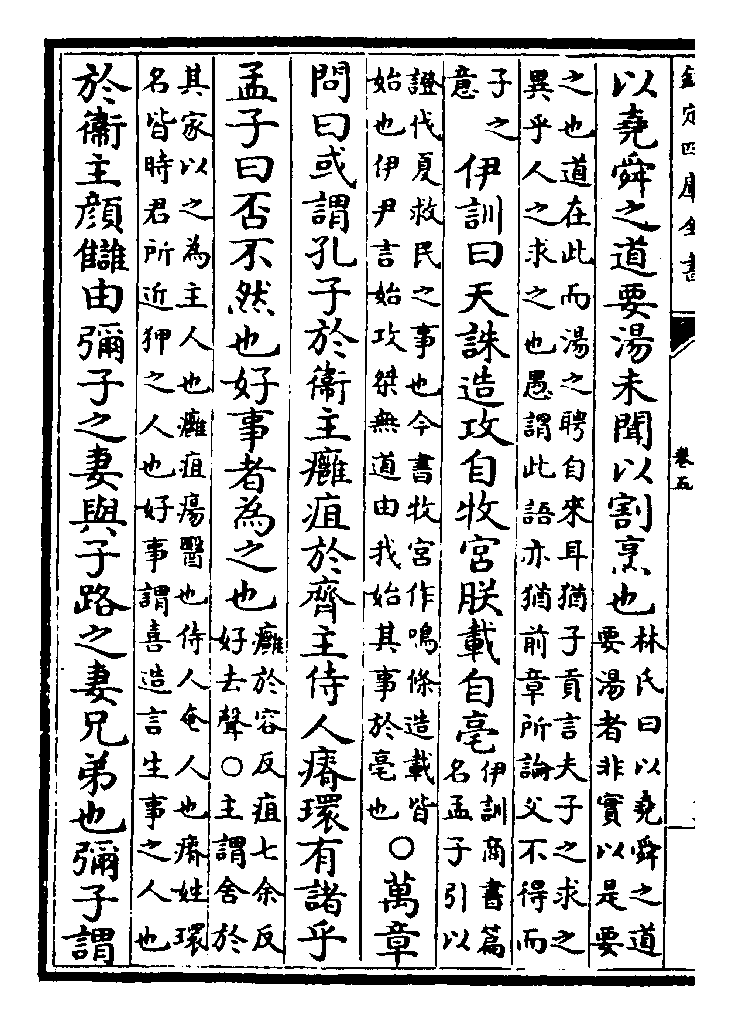 欽定四庫全書
卷五
以堯舜之道要湯未聞以割烹也
林氏曰以堯舜之道
要湯者非實以是要
之也道在此而湯之聘自來耳猶子貢言夫子之求之
異乎人之求之也愚謂此語亦猶前章所論父不得而
子之
意
伊訓曰天誅造攻自牧宮朕載自亳
伊訓商書篇
名孟子引以
證伐夏救民之事也今書牧宮作鳴條造載皆
始也伊尹言始攻桀無道由我始其事於亳也
○萬章
問曰或謂孔子於衞主癰疽於齊主侍人瘠環有諸乎
孟子曰否不然也好事者為之也
癰於容反疽七余反
好去聲○主謂舍於
其家以之為主人也癰疽瘍醫也侍人奄人也瘠姓環
名皆時君所近狎之人也好事謂喜造言生事之人也
於衞主顔讎由彌子之妻與子路之妻兄弟也彌子謂